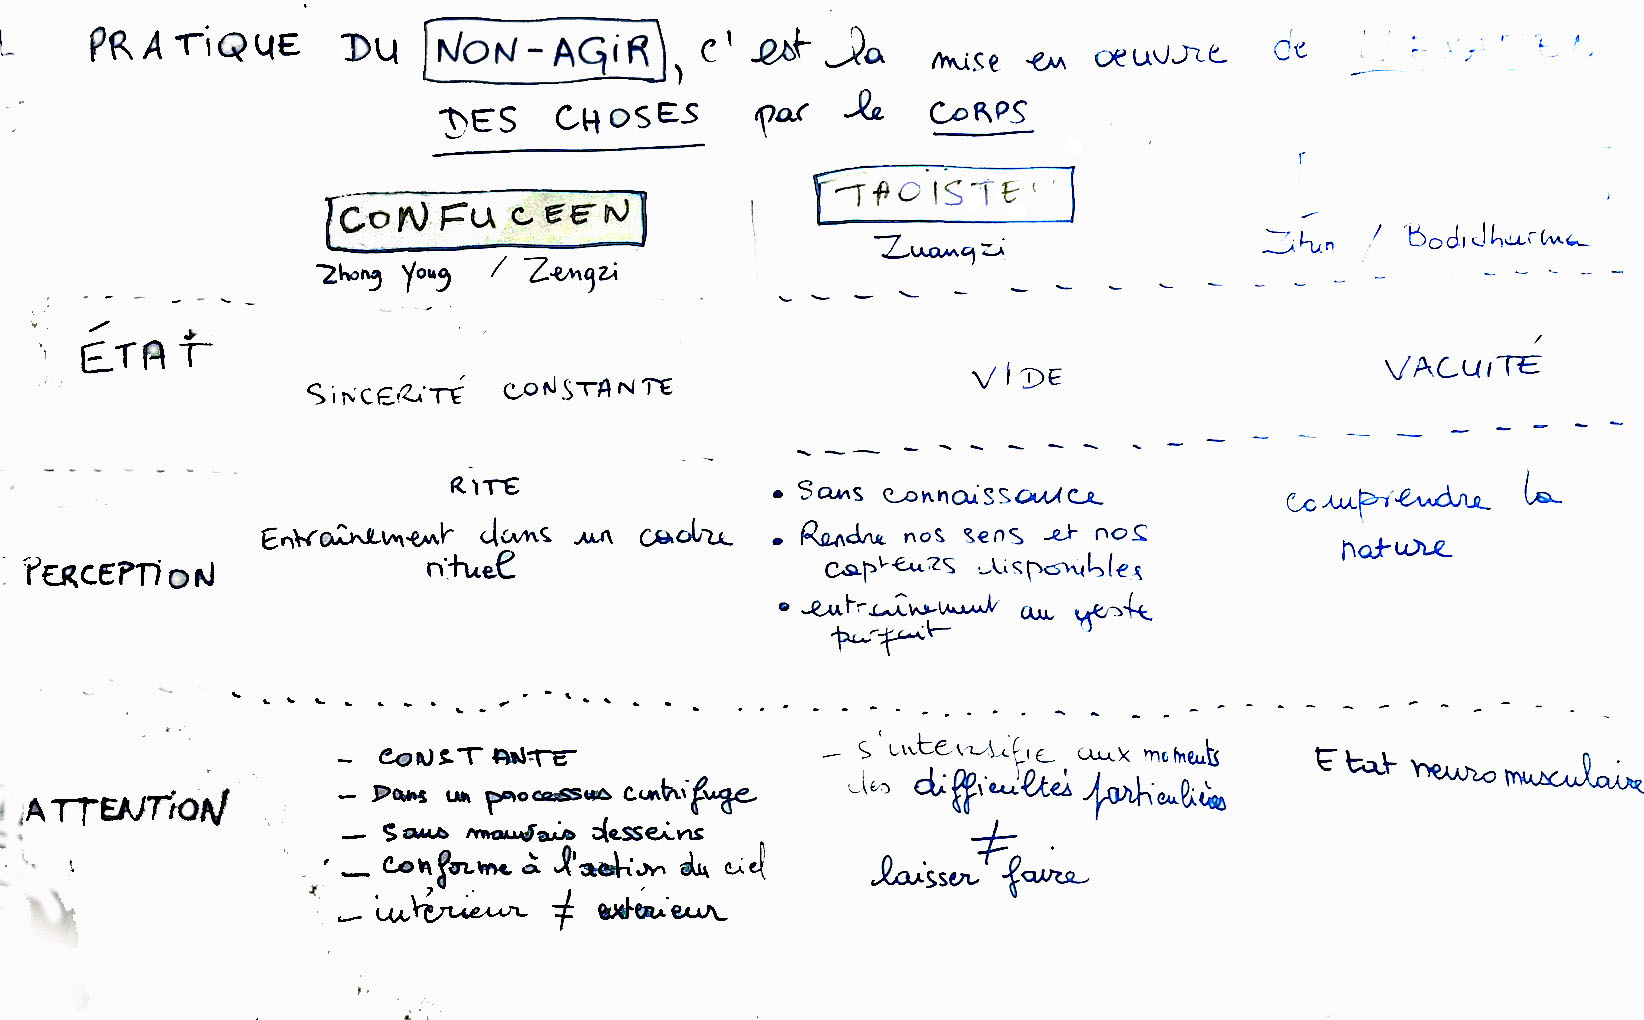 PRATIQUE DU NON-AGIR, c'est la mise en oeuvre de
DES CHOSES par le CORPS
CONFUCEEN
TAOÏSTE
Zhong Young / Zengzi
Zuangzi
/ Bodidharma
ÉTAT
SINCERITÉ CONSTANTE
VIDE
VACUITÉ
PERCEPTION
RITE
Entraînement dans un cadre
rituel
• Sans connaissance
• Rendre nos sens et nos
capteurs disponibles
• entraînement au geste
parfait
comprendre la
nature
ATTENTION
- CONSTANTE
- Dans un processus centrifuge
- Sans mauvais desseins
- Conforme à l'action du ciel
- intérieur ≠ extérieur
- s'intensifie aux moments
des difficultés particulières
≠
laisser faire
Etat neuromusculaire